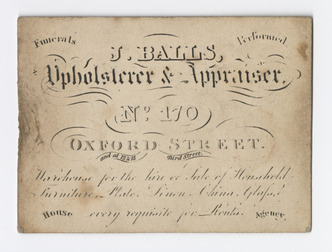 Funerals Performed
J. BALLS,
Upholsterer & Appraiser,
No. 170
OXFORD STREET.
and at No. Bird Street.
Warehouse for the hire or Sale of Household
Furniture, Plate, Linen, China, Glass,
House every requisite for Routs. Agency.